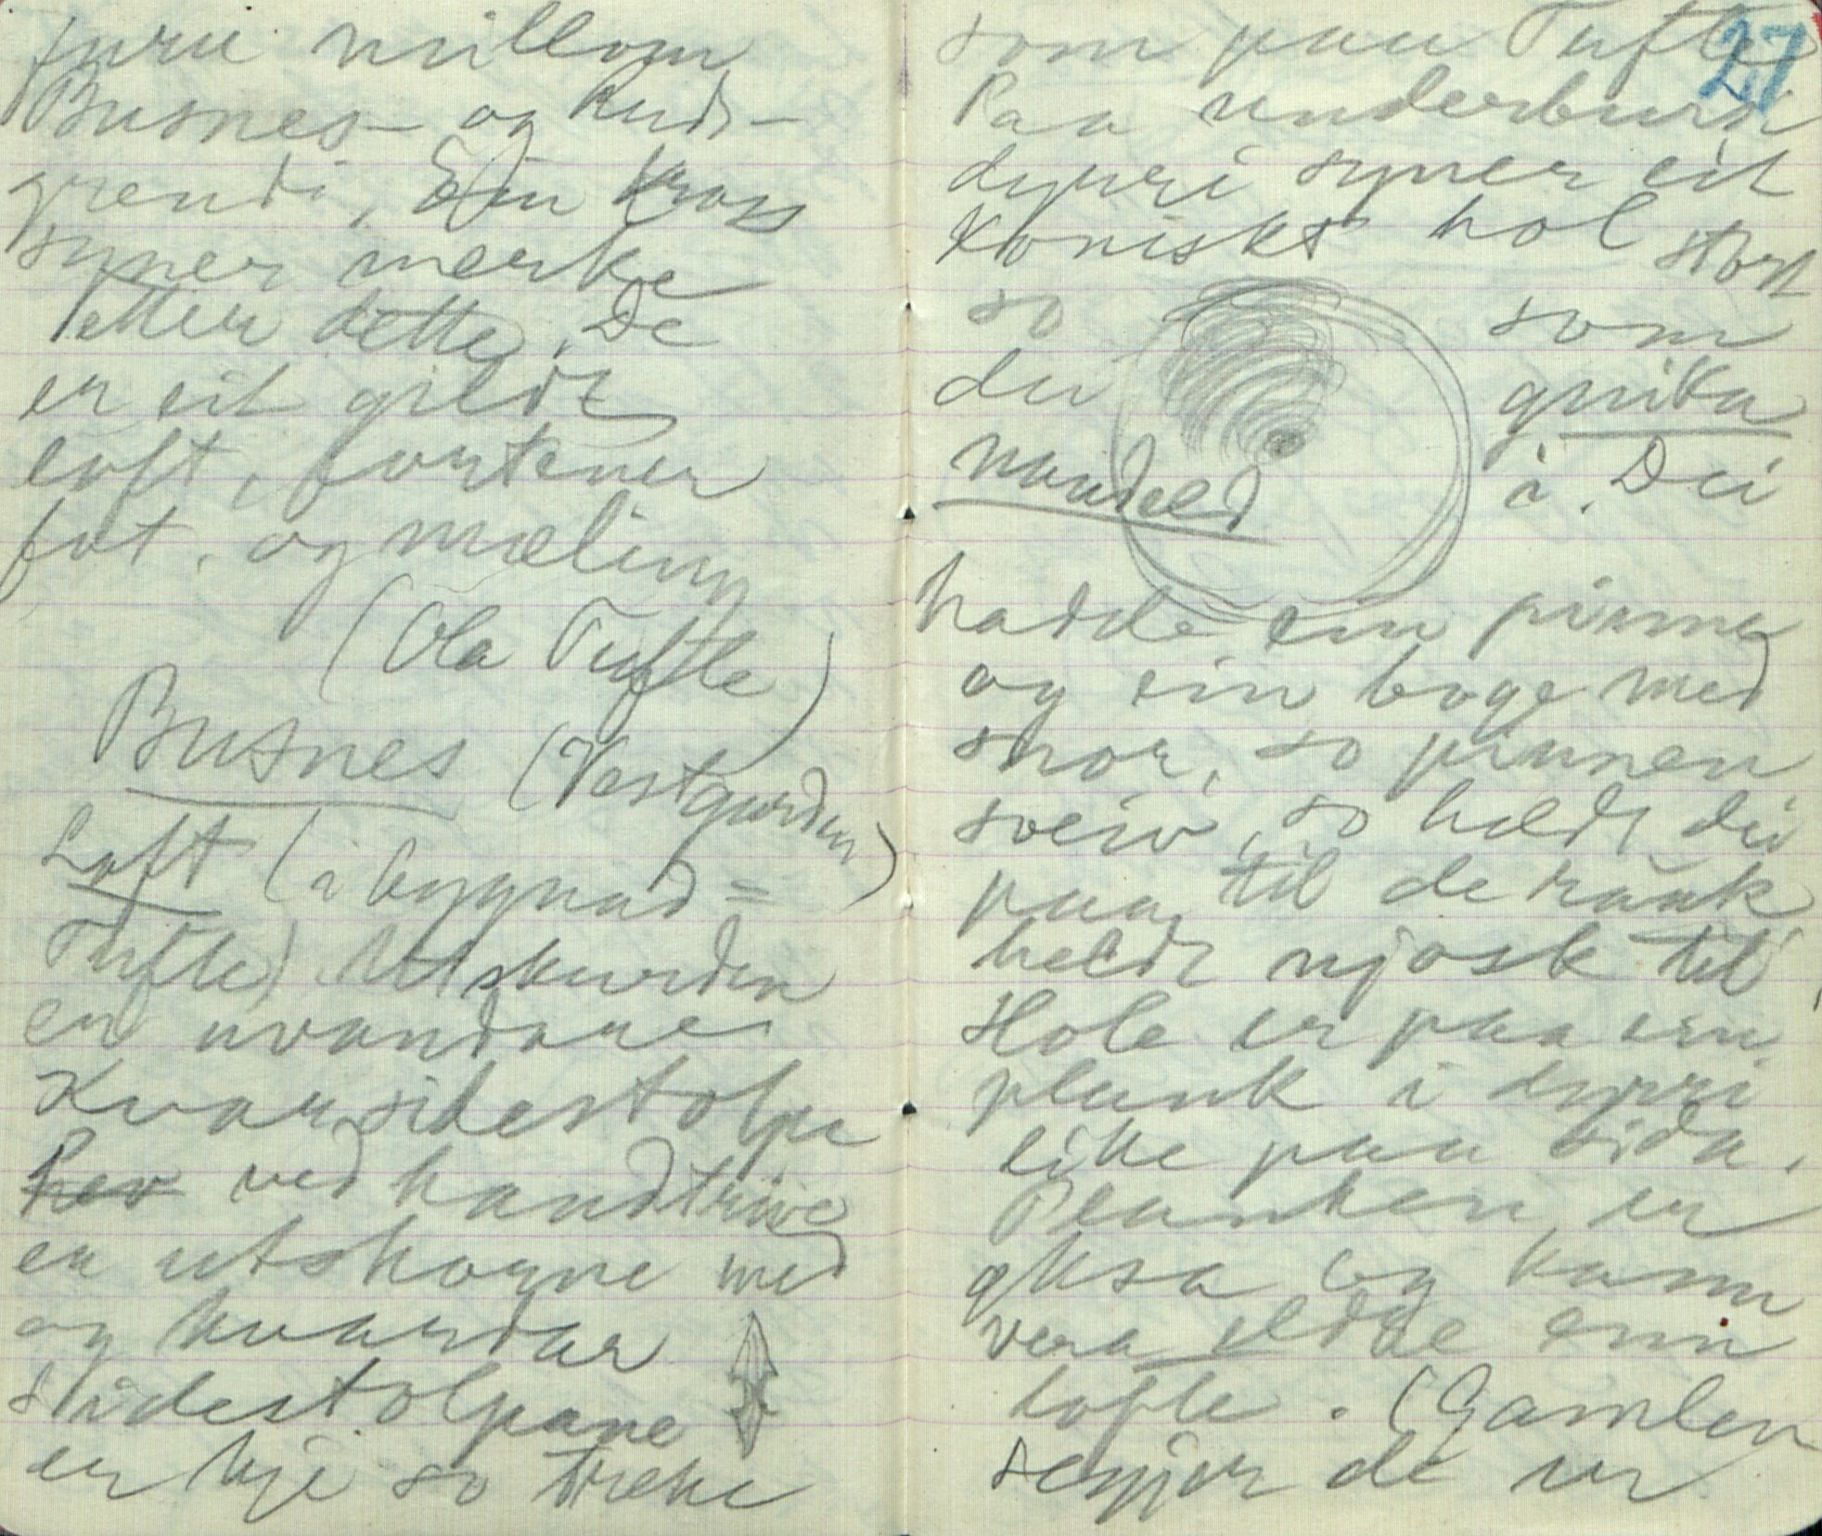 furu millom
Busnes- og Ruds-
grendi, Ein kross
syner merke
etter dette. De
er eit gildt
loft, fortener
fot. og mæling
(Ola Tufte)
Busnes (Vestgarden)
Loft (i bygnad =
Tufte) Utskurden
er uvandare
Kvar sidestolpe
ved handtrive
er utskorne med
og kvardar
sidestolpane
er kje so trekt
27
som paa Tufte
Paa underburs
dynni syner eit
koniskt hol stort
so som
dei gnika
naudeld i. Dei
hadde ein pinne
og ein boge med
snor, so pinnen
sveiv, so heldt dei
paa til de rauk
heldt njosk til
Hole er paa ein
plank i dynni
like paa sida.
Planken er
øksa og kann
vera eldre enn
lofte. (Gamlen
segjer de er